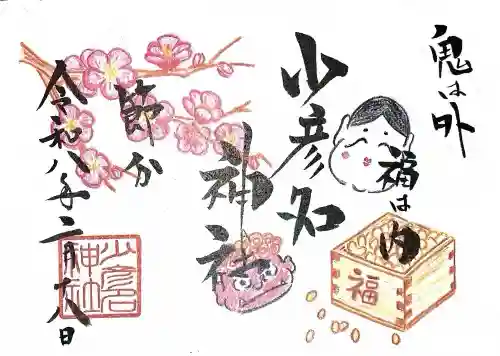 鬼は外
福は内
少彦名
神社
節分
令和八年二月十八日
少彦名
神社
福